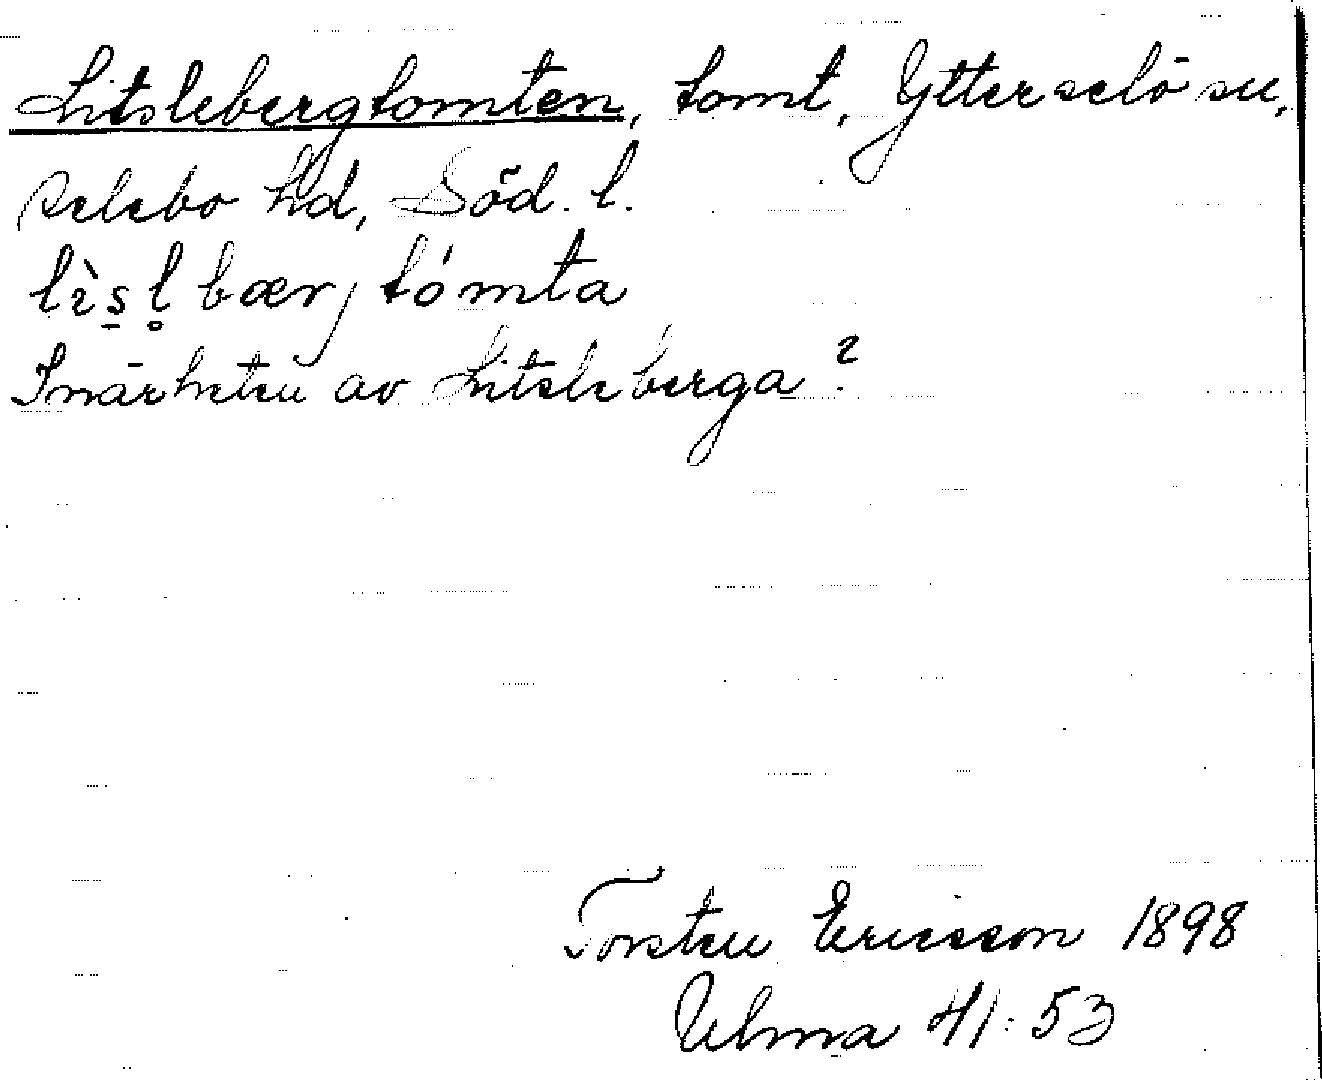 Litslebergtomten, tomt, Ytterselö sn,
Selebo hd, Söd. l.
lìs̱l̥bærjtómta
I närheten av Litsleberga?
Torsten Ericsson 1898
Ulma 41:53